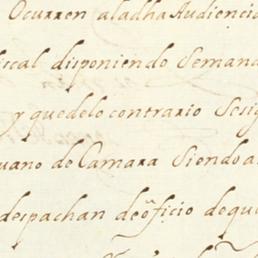 Ocurren aladha Audiencia
iscal disponiendo Semana
y quedelo contrario Sesig
uano de Camara Siendo a
despachan de officio deque